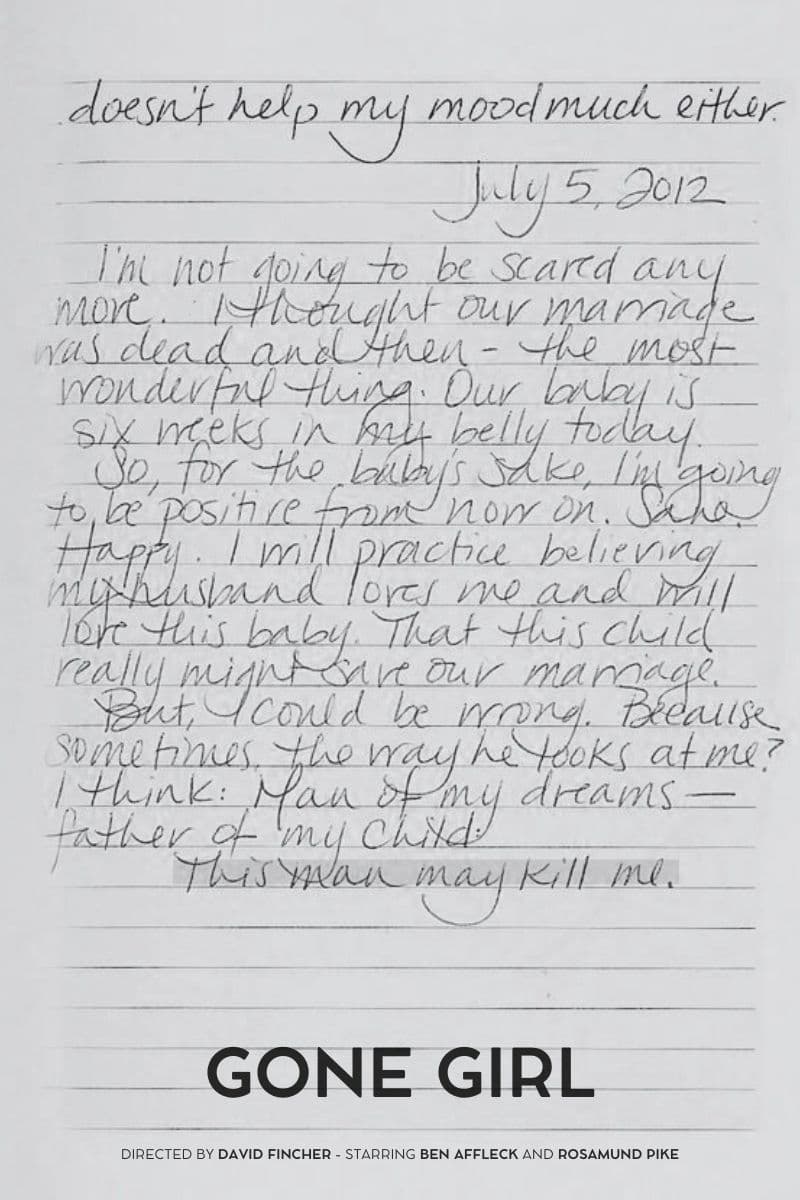 doesn't help my mood much either.
July 5, 2012
I'm not going to be scared any
more. I thought our marriage
was dead and then - the most
wonderful thing. Our baby is
six weeks in my belly today.
So, for the baby's sake, I'm going
to be positive from now on. Sane.
Happy. I will practice believing
my husband loves me and will
love this baby. That this child
really might save our marriage.
But, I could be wrong. Because
sometimes, the way he looks at me?
I think: Man of my dreams —
father of my child:
This man may kill me.
GONE GIRL
DIRECTED BY DAVID FINCHER - STARRING BEN AFFLECK AND ROSAMUND PIKE